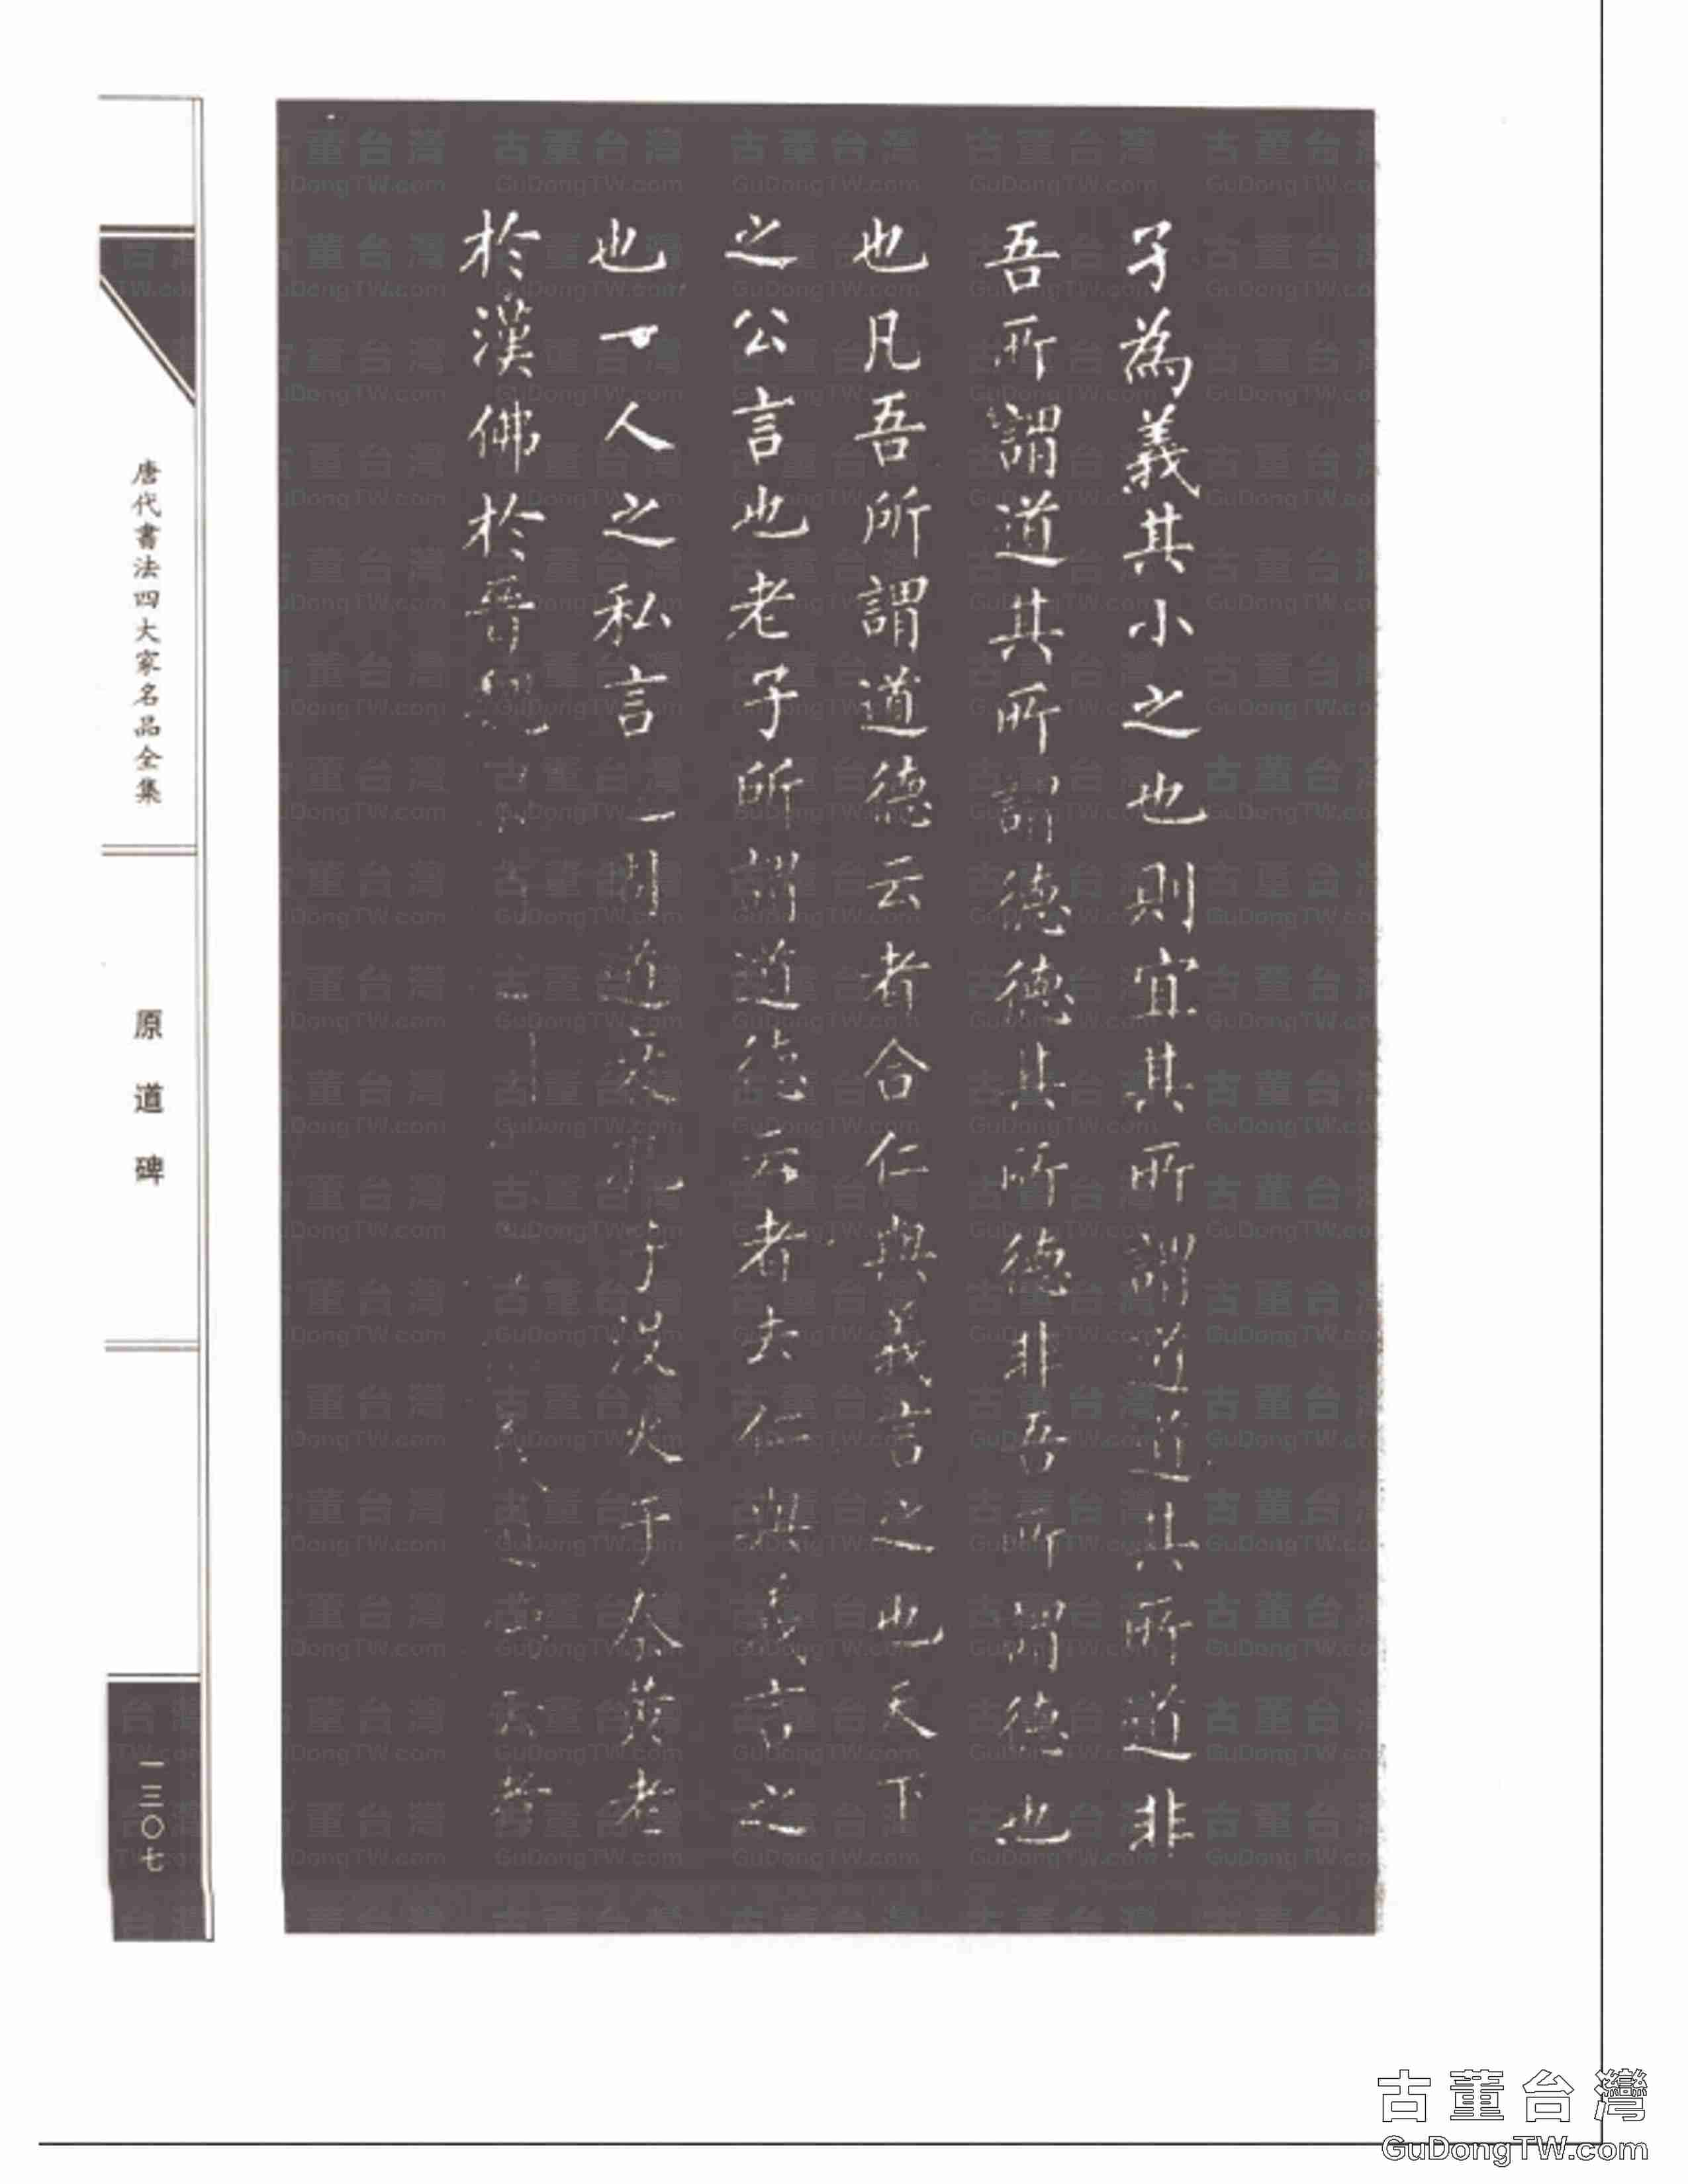 孑為義其小之也則宜其所謂道道其所道非
吾所謂道其所謂德德其所德非吾所謂德也
也凡吾所謂道德云者合仁與義言之也天下
之公言也老子所謂道德云者去仁與義言之
也一人之私言也周道衰孔子沒火于秦黃老
於漢佛於晉魏
唐代書法四大家名品全集
原道碑
一三〇七
古董台灣
GuDongTW.com